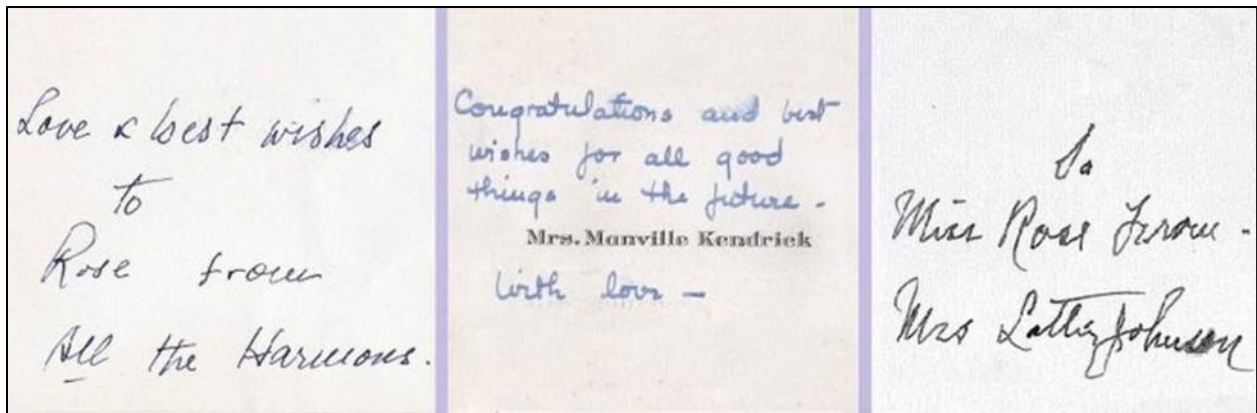 Love & best wishes
to
Rose from
All the Harmons.
Congratulations and best
wishes for all good
things in the future -
Mrs. Manville Kendrick
With love -
To
Miss Rose From -
Mrs Johnson